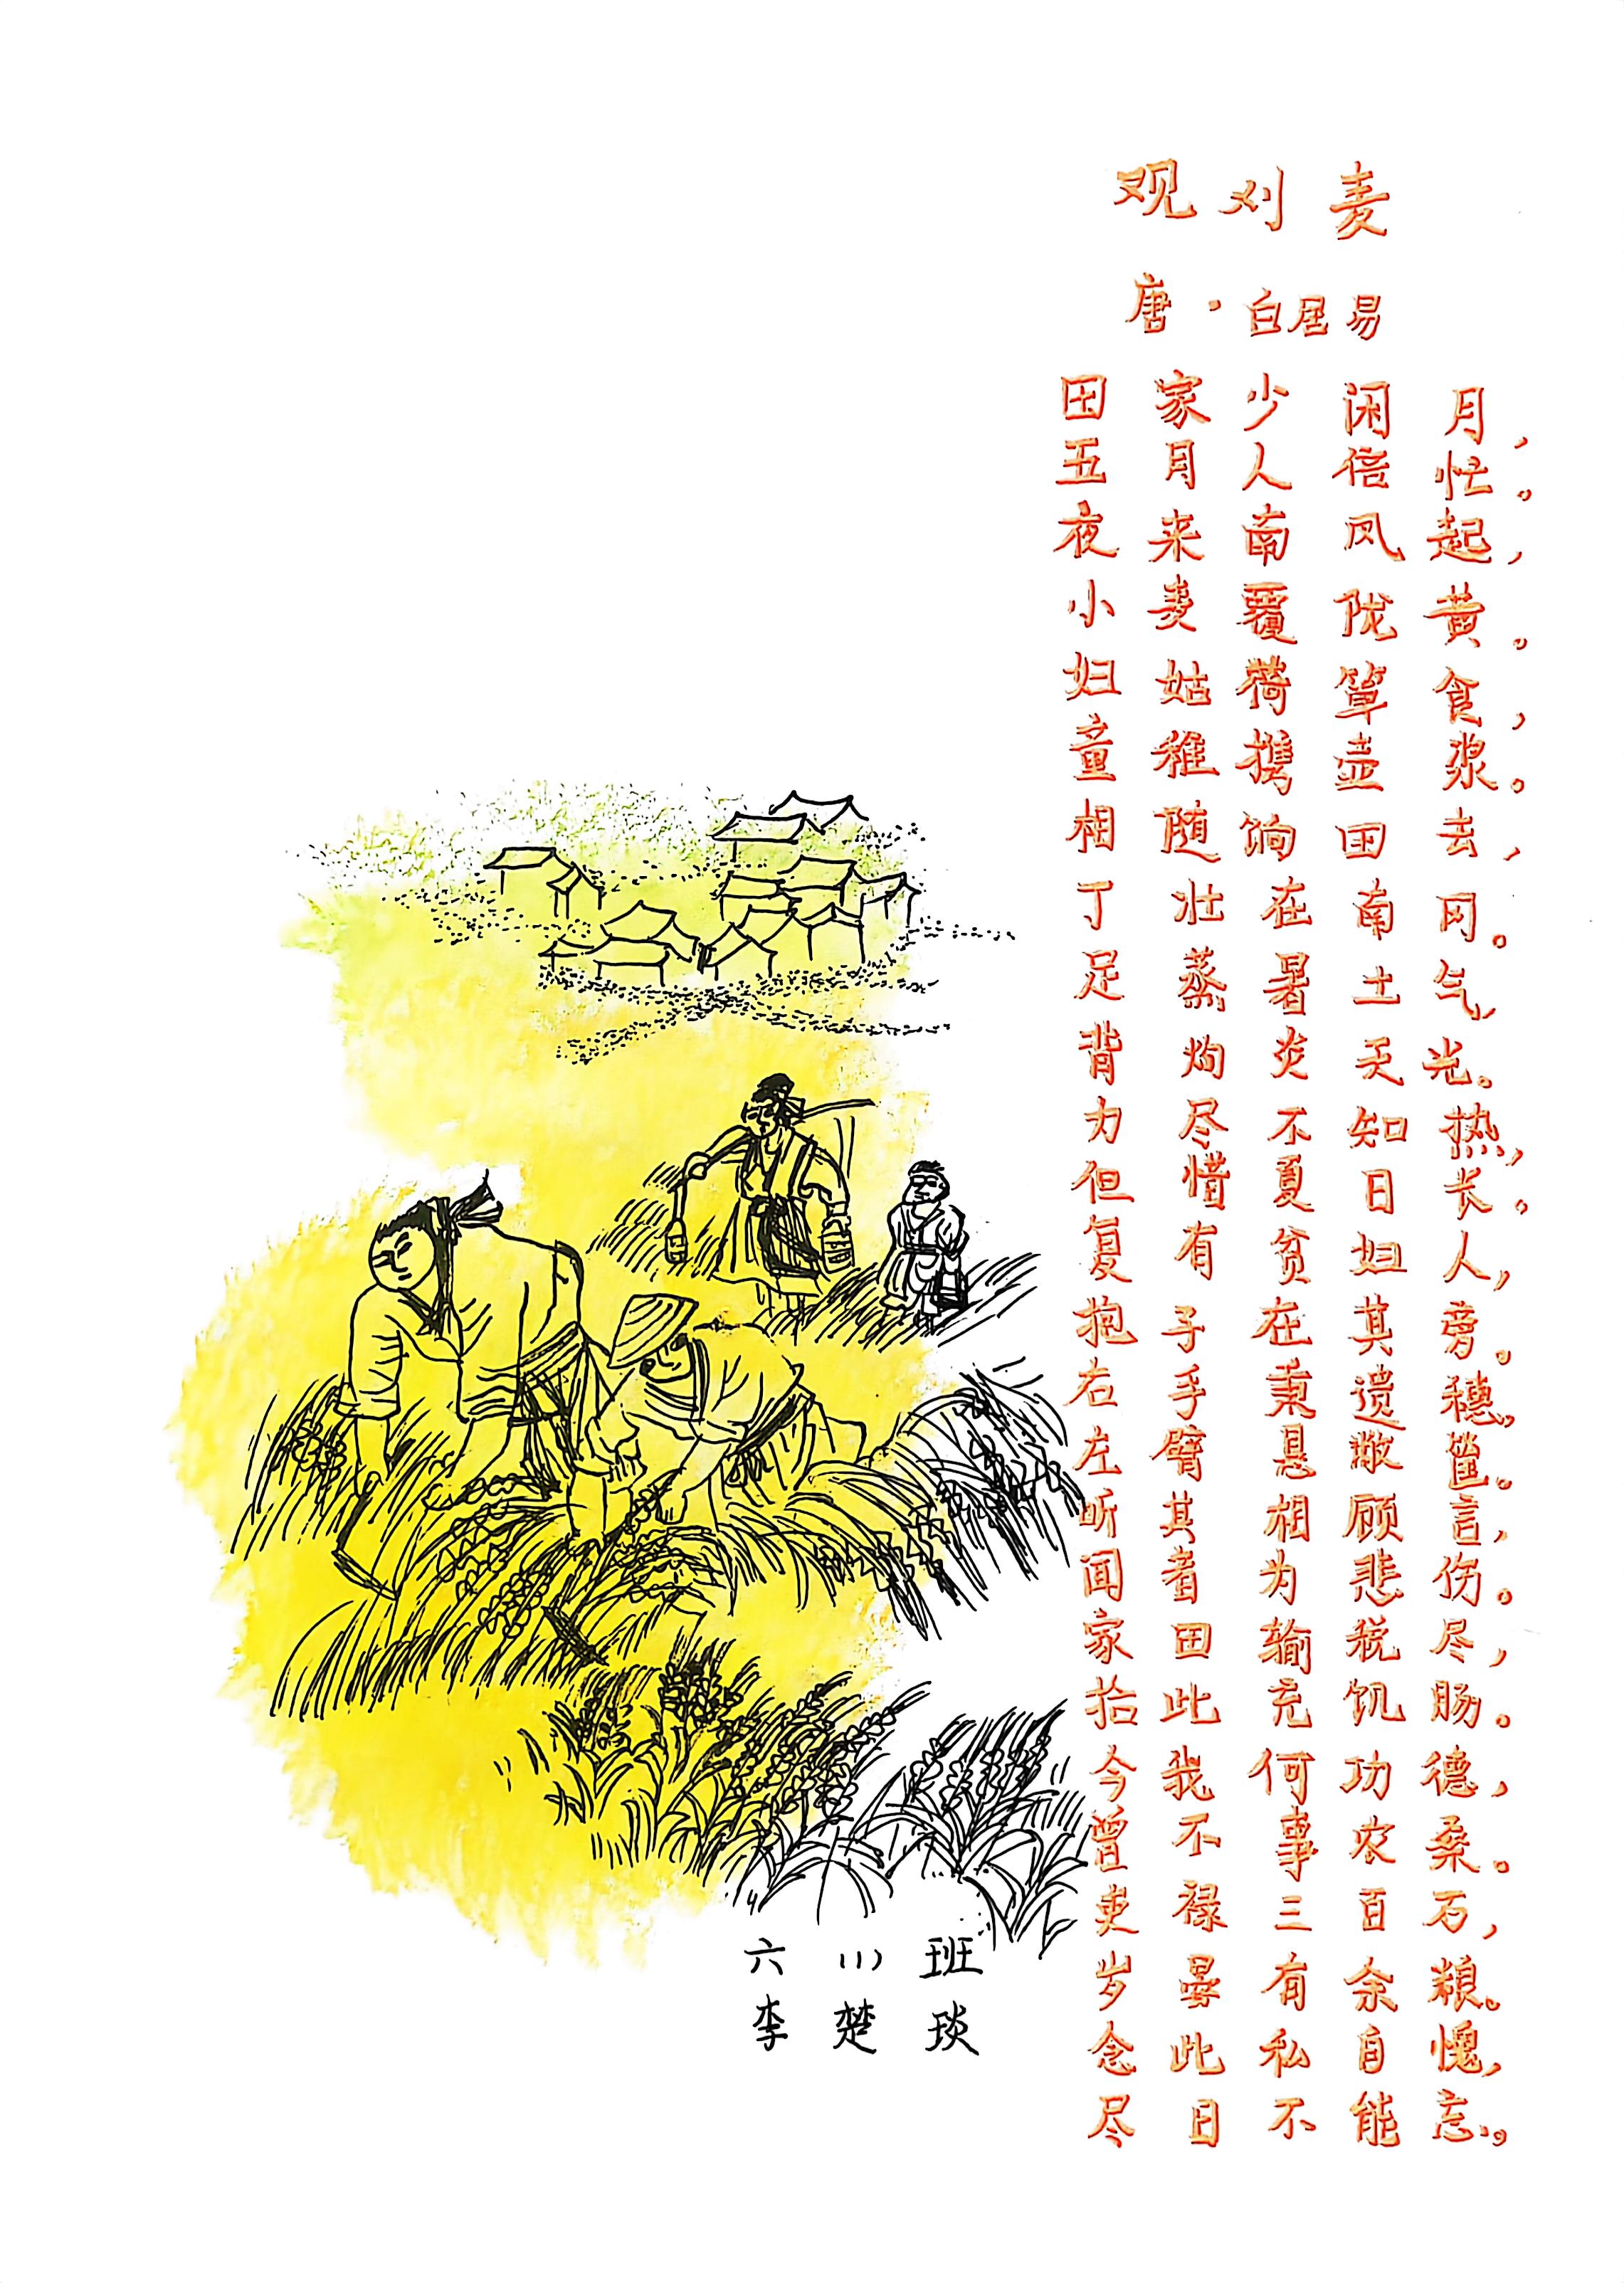 观刈麦
唐·白居易
田家少闲月，
五月人倍忙。
夜来南风起，
小麦覆陇黄。
妇姑荷箪食，
童稚携壶浆。
相随饷田去，
丁壮在南冈。
足蒸暑土气，
背灼炎天光。
力尽不知热，
但惜夏日长。
复有贫妇人，
抱子在其旁。
右手秉遗穗，
左臂悬敝筐。
听其相顾言，
闻者为悲伤。
家田输税尽，
拾此充饥肠。
今我何功德，
曾不事农桑。
吏禄三百石，
岁晏有余粮。
念此私自愧，
尽日不能忘。
六(1)班
李楚琰